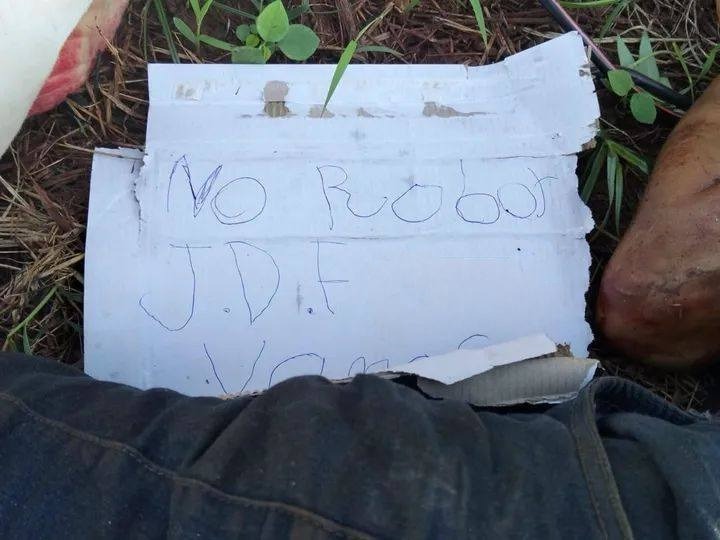 No Robar
J.D.F